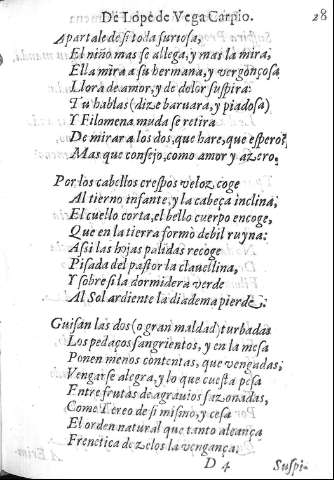 De Lope de Vega Carpio. 28
Apartale de si toda furiosa,
El niño mas se allega, y mas la mira,
Ella mira a su hermana, y vergonçosa
Llora de amor, y de dolor suspira:
Tu hablas (dize baruara, y piadosa)
Y Filomena muda se retira
De mirar a los dos, que hare, que espero?
Mas que consejo, como amor y azero.
Por los cabellos crespos veloz coge
Al tierno infante, y la cabeça inclina,
El cuello corta, el bello cuerpo encoge,
Que en la tierra formò debil ruyna:
Assi las hojas palidas recoge
Pisada del pastor la clauellina,
Y sobre si la dormidera verde
Al Sol ardiente la diadema pierde.
Guisan las dos (o gran maldad) turbadas
Los pedaços sangrientos, y en la mesa
Ponen menos contentas, que vengadas,
Vengarse alegra, y lo que cuesta pesa
Entre frutas de agrauios sazonadas,
Come Tereo de si mismo, y cesa
El orden natural que tanto alcança
Frenetica de zelos la vengança.
D 4 Suspi-